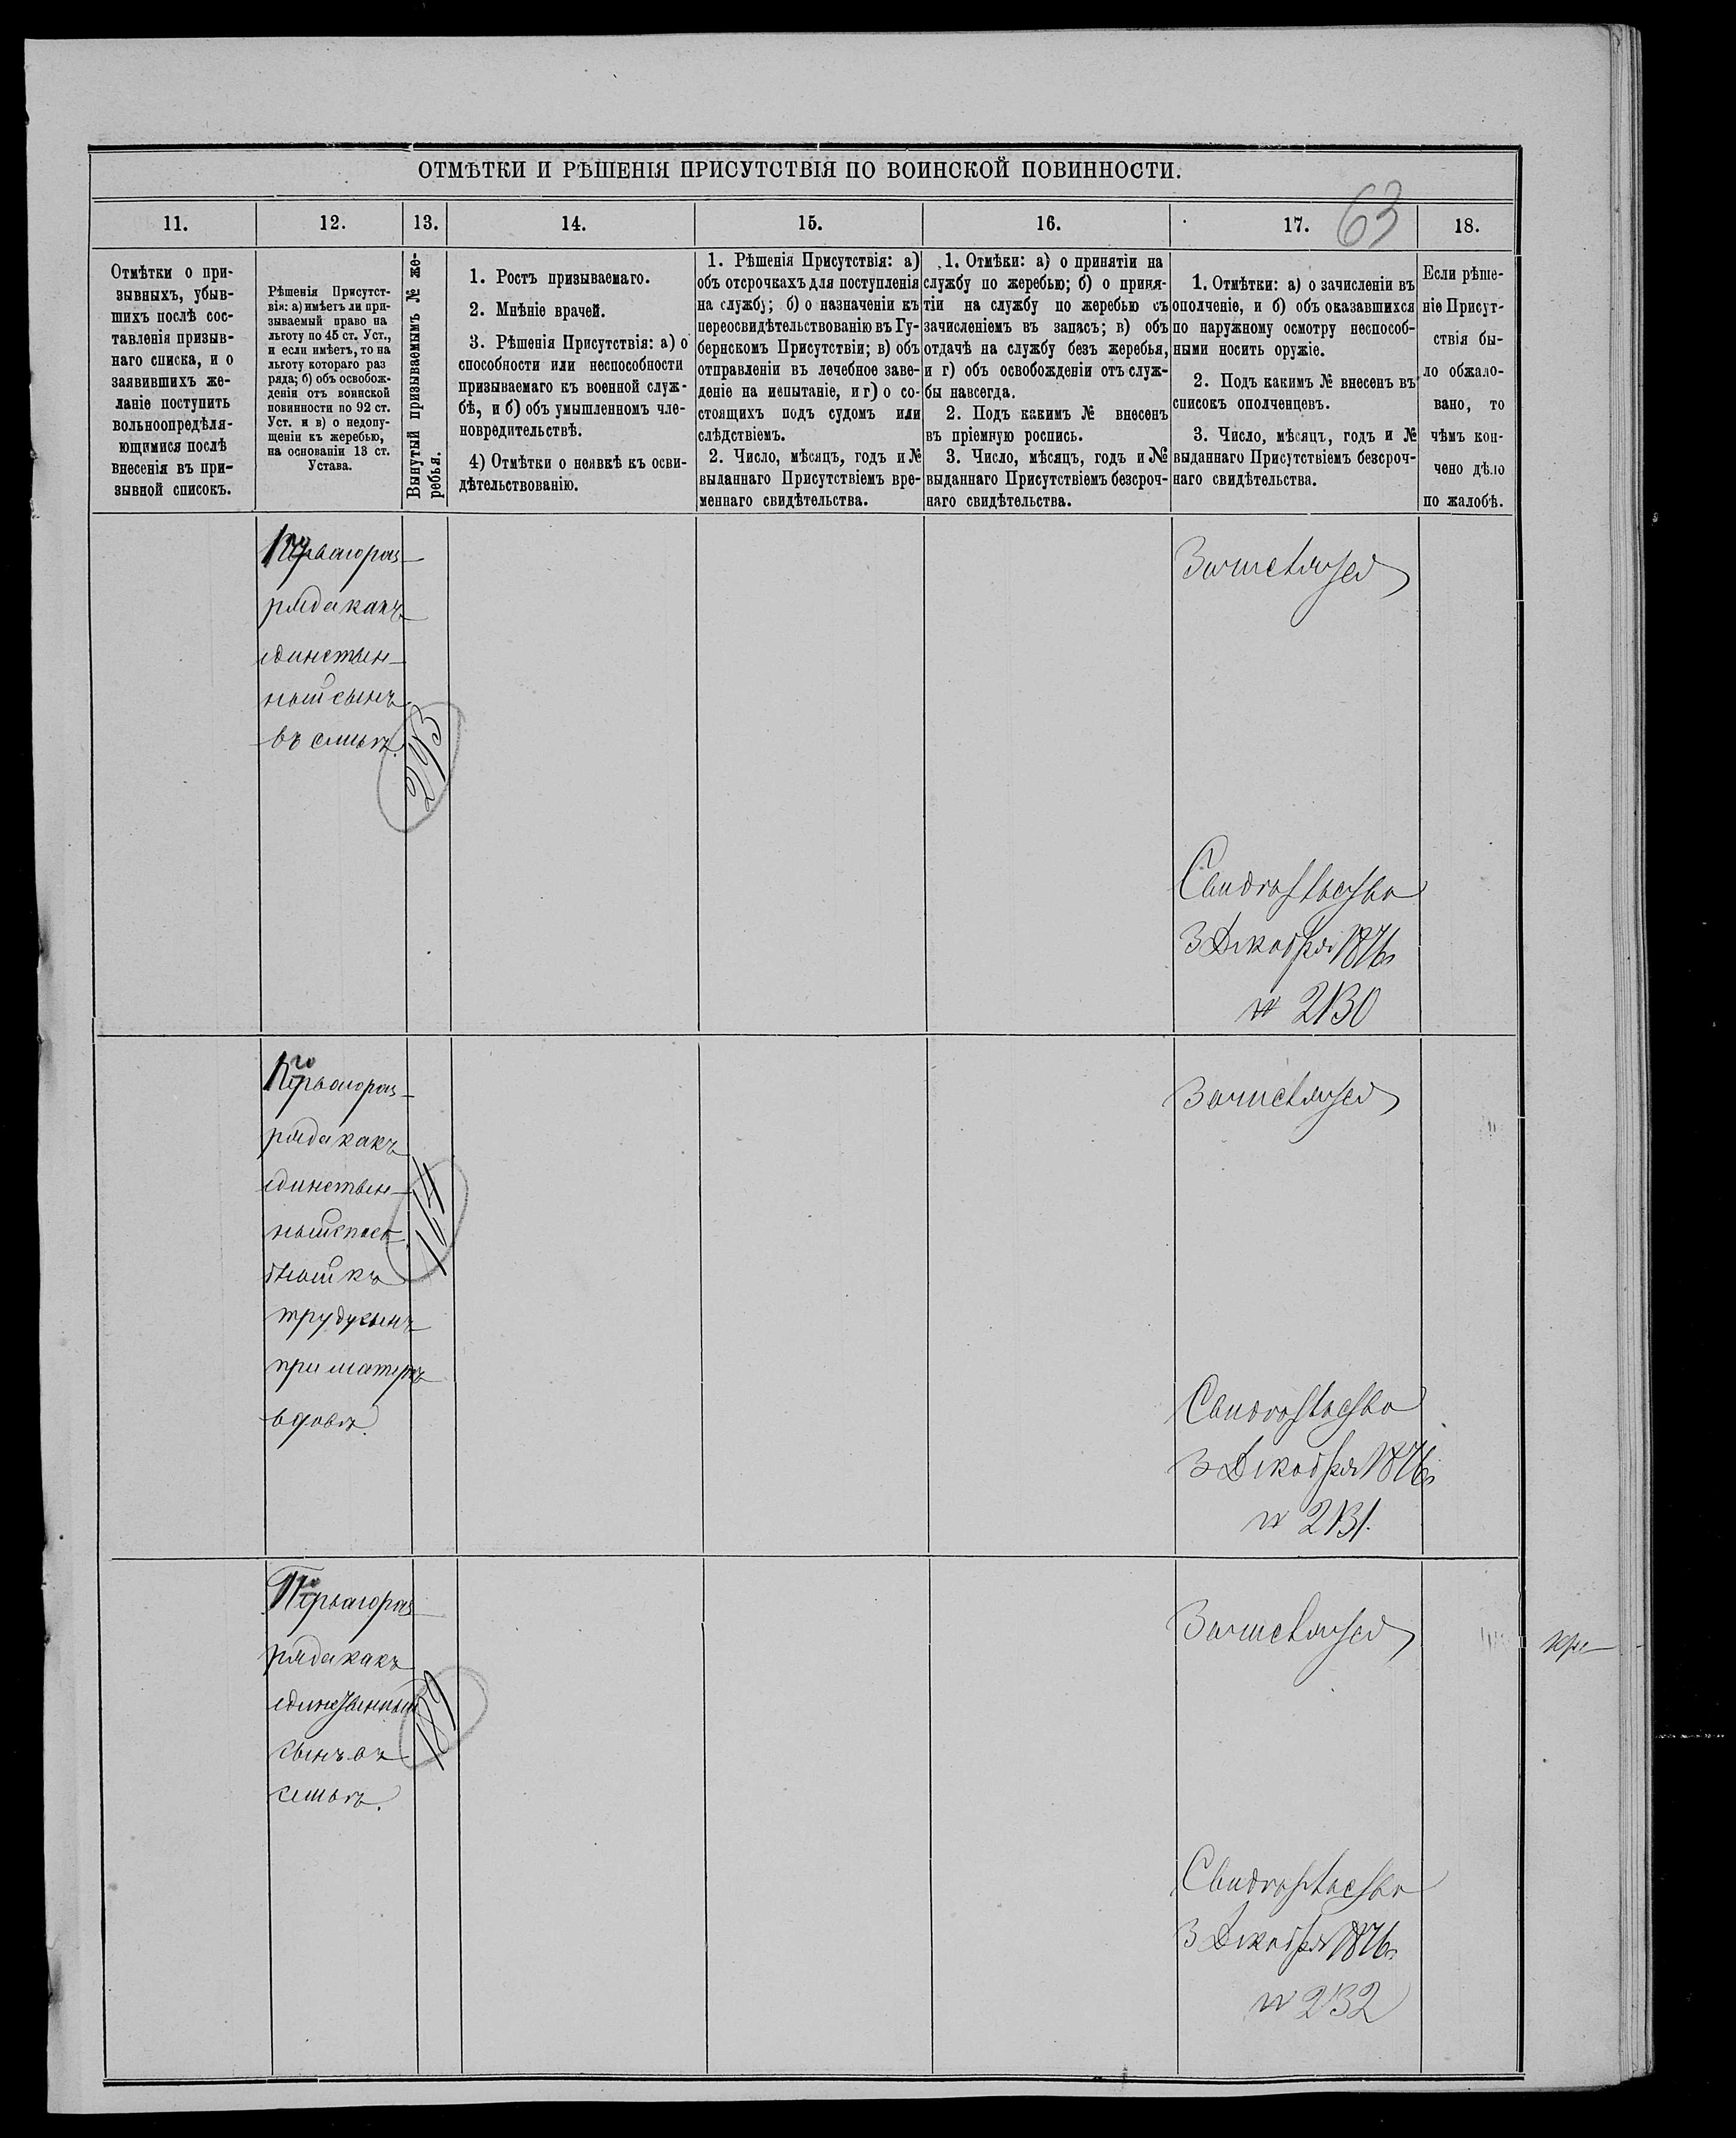 ОТМѢТКИ И РѢШЕНІЯ ПРИСУТСТВІЯ ПО ВОИНСКОЙ ПОВИННОСТИ.
63
11.
12.
13.
14.
15.
16.
17.
18.
Отмѣтки о при-
зывныхъ, убыв-
шихъ послѣ сос-
тавленія призыв-
наго списка, и о
заявившихъ же-
ланіе поступить
вольноопредѣля-
ющимися послѣ
внесенія въ при-
зывной списокъ.
Рѣшенія Присутст-
вія: а) имѣетъ ли при-
зываемый право на
льготу по 45 ст. Уст.,
и если имѣетъ, то на
льготу котораго раз
ряда; б) объ освобож-
деніи отъ воинской
повинности по 92 ст.
Уст. и в) о недопу-
щеніи къ жеребью,
на основаніи 13 ст.
Устава.
Вынутый призываемымъ № же-
ребья.
1. Ростъ призываемаго.
2. Мнѣніе врачей.
3. Рѣшенія Присутствія: а) о
способности или неспособности
призываемаго къ военной служ-
бѣ, и б) объ умышленномъ чле-
новредительствѣ.
4) Отмѣтки о неявкѣ къ осви-
дѣтельствованію.
1. Рѣшенія Присутствія: а)
объ отсрочкахъ для поступленія
на службу; б) о назначеніи къ
переосвидѣтельствованію въ Гу-
бернскомъ Присутствіи; в) объ
отправленіи въ лечебное заве-
деніе на испытаніе, и г) о со-
стоящихъ подъ судомъ или
слѣдствіемъ.
2. Число, мѣсяцъ, годъ и №
выданнаго Присутствіемъ вре-
меннаго свидѣтельства.
1. Отмѣки: а) о принятіи на
службу по жеребью; б) о приня-
тіи на службу по жеребью съ
зачисленіемъ въ запасъ; в) объ
отдачѣ на службу безъ жеребья,
и г) объ освобожденіи отъ служ-
бы навсегда.
2. Подъ какимъ № внесенъ
въ пріемную роспись.
3. Число, мѣсяцъ, годъ и №
выданнаго Присутствіемъ безсроч-
наго свидѣтельства.
1. Отмѣтки: а) о зачисленіи въ
ополченіе, и б) объ оказавшихся
по наружному осмотру неспособ-
ными носить оружіе.
2. Подъ какимъ № внесенъ въ
списокъ ополченцевъ.
3. Число, мѣсяцъ, годъ и №
выданнаго Присутствіемъ безсроч-
наго свидѣтельства.
Если рѣше-
ніе Присут-
ствія бы-
ло обжало-
вано, то
чѣмъ кон-
чено дѣло
по жалобѣ.
Перваго раз-
ряда какъ
единствен-
ный сынъ
въ семьѣ.
293
Зачисляется
Свидѣтельство
3 Декабря 1876
№ 2130
Перваго раз-
ряда какъ
единствен-
ный спосо-
бный къ
труду сынъ
при матерѣ
вдовѣ.
Зачисляется
Свидѣтельство
3 Декабря 1876
№ 2131.
Перваго раз-
ряда какъ
единственный
сынъ въ
семьѣ.
189
Зачисляется
Свидѣтельство
3 Декабря 1876
№ 2132